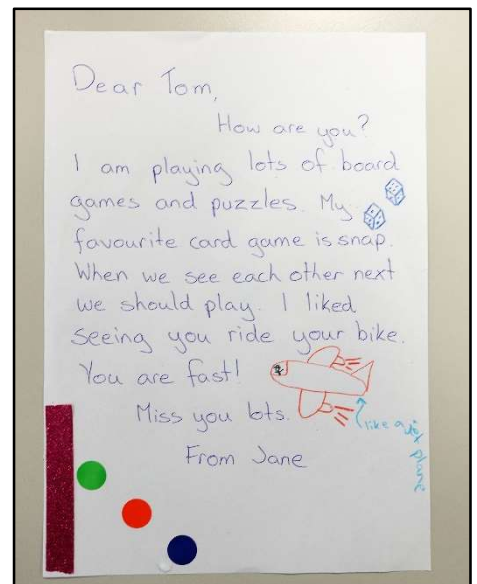 Dear Tom,
How are you?
I am playing lots of board
games and puzzles. My
favourite card game is snap.
When we see each other next
we should play. I liked
seeing you ride your bike.
You are fast!
like a jet plane
Miss you lots.
From Jane